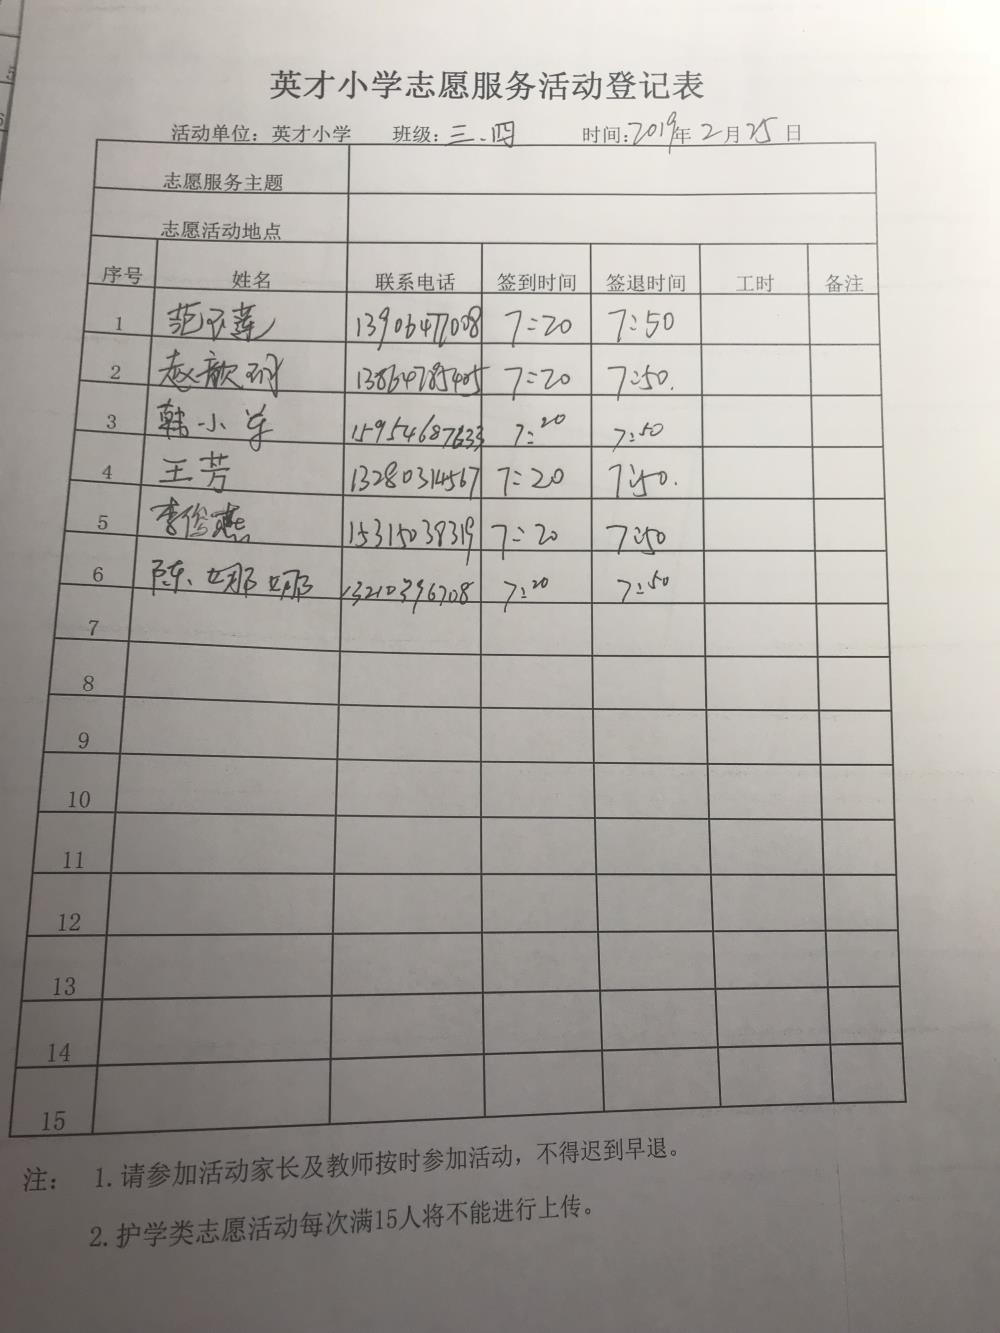 英才小学志愿服务活动登记表
活动单位：英才小学 班级：三.四 时间：2019年2月25日
志愿服务主题
志愿活动地点
序号 姓名 联系电话 签到时间 签退时间 工时 备注
1 范玉莲 13906477008 7:20 7:50
2 赵歆 13864785405 7:20 7:50.
3 韩小华 15954687633 7:20 7:50
4 王芳 13280314567 7:20 7:50.
5 李俊燕 15315038319 7:20 7:50
6 陈娜娜 13210396708 7:20 7:50
7
8
9
10
11
12
13
14
15
注： 1.请参加活动家长及教师按时参加活动，不得迟到早退。
2.护学类志愿活动每次满15人将不能进行上传。